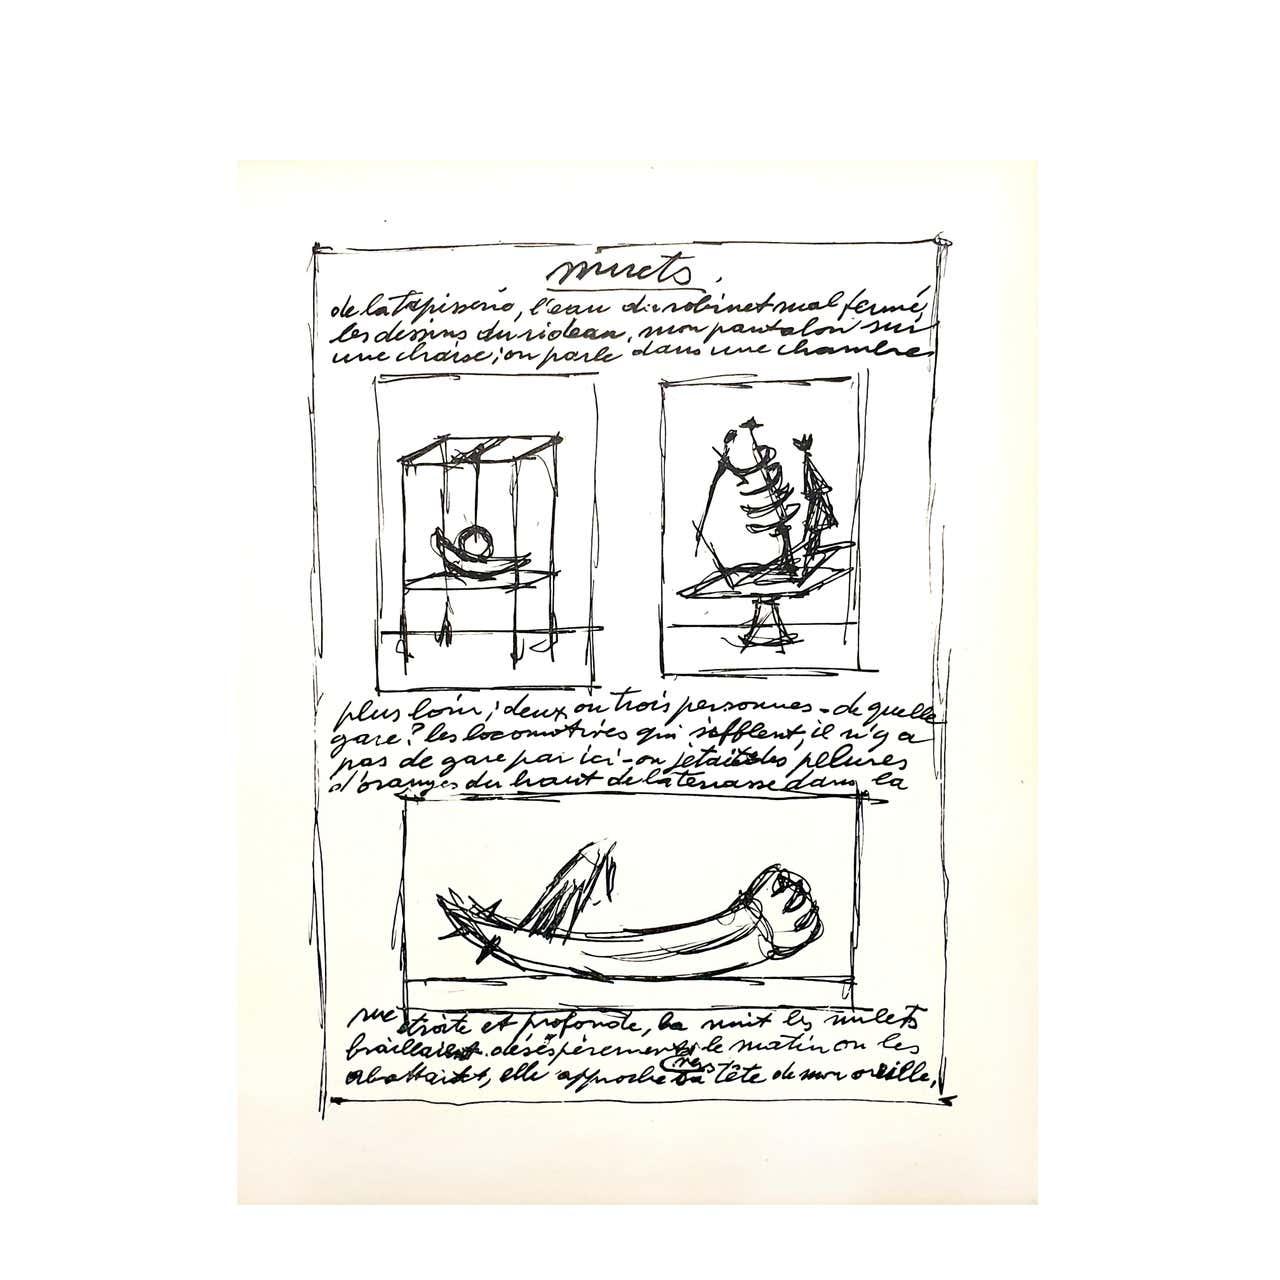 muets
de la tapisserie, l'eau du robinet mal fermé,
les dessins du rideau, mon pantalon sur
une chaise; on parle dans une chambre
plus loin; deux ou trois personnes - de quelle
gare? les locomotives qui sifflent, il n'y a
pas de gare par ici - on jetait des pelures
d'oranges du haut de la terrasse dans la
rue étroite et profonde, la nuit les mulets
braillaient désespérement le matin on les
abattait, elle approche vers sa tête de mon oreille,